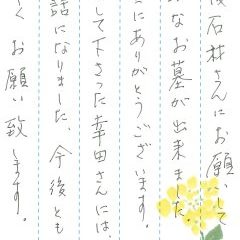 石材さんにお願いして
なお墓が出来ました。
にありがとうございます。
して下さった幸田さんには、
話になりました。今後とも
くお願い致します。